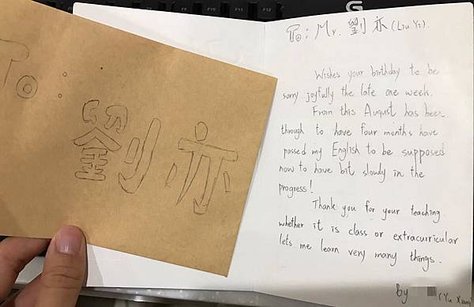 To:
劉亦
To: Mr. 劉亦 (Liu Yi).
Wishes your birthday to be
sorry joyfully the late one week.
From this August has been
through to have four months have
passed my English to be supposed
now to have bit slowly in the
progress!
Thank you for your teaching
whether it is class or extracurricular
lets me learn very many things.
By (Yu Xuan